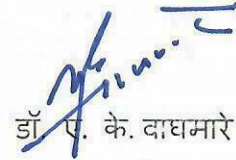 डॉ. ए. के. वाघमारे